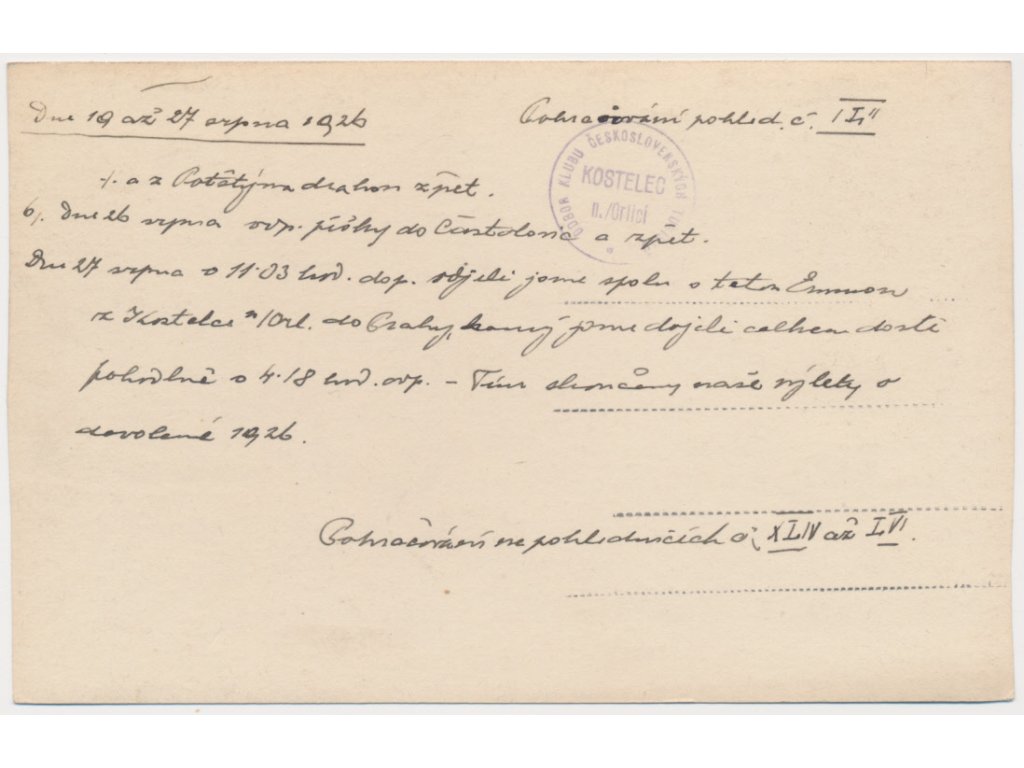 Dne 19 až 27 srpna 1926
Pokračování pohled. č.
ODBOR KLUBU ČESKOSLOVENSKÝCH
KOSTELEC
n./Orlicí
a z Potštýna drahou zpět.
6/. Dne 26 srpna odp. pěšky do Častolovic a zpět.
Dne 27 srpna o 11·03 hod. dop. odjeli jsme spolu s tetou Emmou
z Kostelce n/Orl. do Prahy, kamž jsme dojeli celkem dosti
pohodlně o 4·18 hod. odp. – Tím skončeny naše výlety o
dovolené 1926.
Pokračování na pohlednicích č. XLIV až LVI.